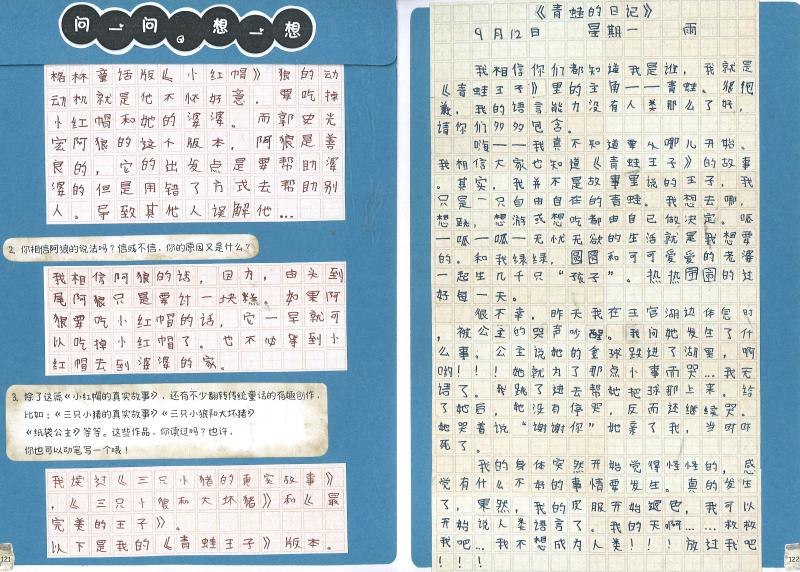 问一问。想一想
格林童话版《小红帽》狼的动
动机就是他不怀好意,要吃掉
小红帽和她的婆婆。而郭史光
宏阿狼的这个版本,阿狼是善
良的,它的出发点是要帮助婆
婆的但是用错了方式去帮助别
人。导致其他人误解他…
2. 你相信阿狼的说法吗?信或不信,你的原因又是什么?
我相信阿狼的话,因为,由头到
尾阿狼只是要讨一块糕。如果阿
狼要吃小红帽的话,它一早就可
以吃掉小红帽了。也不必等到小
红帽去到婆婆的家。
3. 除了这篇《小红帽的真实故事》,还有不少翻转传统童话的有趣创作,
比如:《三只小猪的真实故事》《三只小狼和大坏猪》
《纸袋公主》等等。这些作品,你读过吗?也许,
你也可以动笔写一个哦!
我读过《三只小猪的真实故事》
,《三只小狼和大坏猪》和《最
完美的王子》。
以下是我的《青蛙王子》版本。
121
《青蛙的日记》
9月12日 星期一 雨
我相信你们都知道我是谁,我就是
《青蛙王子》里的主角——青蛙。很抱
歉,我的语言能力没有人类那么了好,
请你们多多包含。
嗨——我真不知道要从哪儿开始。
我相信大家也知道《青蛙王子》的故事
。其实,我并不是故事里说的王子,我
只是一只自由自在的青蛙。我想去哪,
想跳,想游或想吃都由自己做决定。呱
一呱一呱一无忧无欲的生活就是我想要
的。和我绿绿,圆圆和可可爱爱的老婆
一起生几千只“孩子”。热热闹闹的过
好每一天。
很不幸,昨天我在王宫湖边休息时
,被公主的哭声吵醒。我问她发生了什
么事。公主说她的金球跌进了湖里,啊
哟!!!她就为了那点小事而哭…我无
语了。我跳了进去帮她把球那上来。给
了她后,她没有停哭,反而还继续哭。
她哭着说“谢谢你”她亲了我,当时吓
死了。
我的身体突然开始觉得怪怪的,感
觉有什么不好的事情要发生。真的发生
了,果然,我的皮肤开始褪色,我可以
开始说人类语言了。我的天啊……救救
我吧…我不想成为人类!!!放过我吧
!!!
122